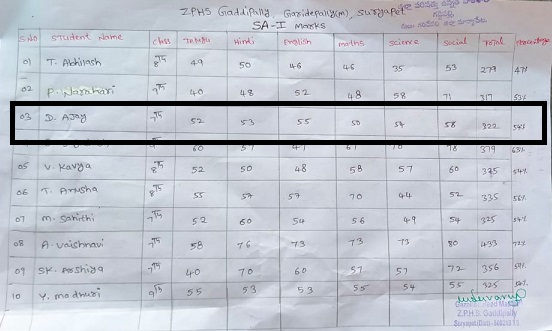 ZPHS Gaddipally, Garidepally(m), Suryapet
SA-I Marks
S.No Student Name Class Telugu Hindi English maths Science Social Total Percentage
01 T. Abhilash 8th 49 50 46 46 35 53 279 47%
02 P. Narahari 9th 40 48 52 48 58 71 317 53%
03 D. Ajay 7th 52 53 55 50 54 58 322 54%
60 57 47 67 70 78 379 63%
05 V. Kavya 8th 52 50 48 58 57 60 325 54%
06 T. Anusha 8th 55 57 57 70 44 52 335 56%
07 M. Sahithi 7th 52 60 54 56 49 54 325 54%
08 A. Vaishnavi 7th 58 76 73 73 73 80 433 72%
09 SK. Arshiya 7th 40 70 60 57 57 72 356 59%
10 Y. Madhuri 9th 55 53 53 55 54 55 325
Head Master
Z.P.H.S. Gaddipally